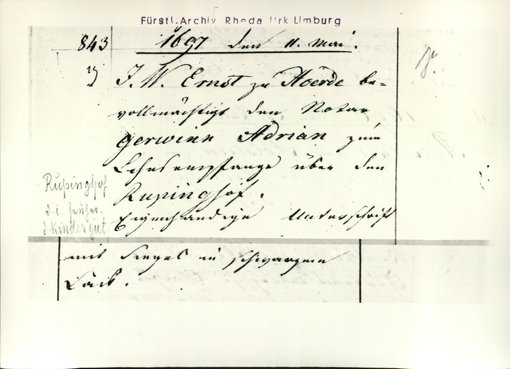 Fürstl. Archiv Rheda Urk Limburg
843
1697 den 11. Mai.
J. W. Ernst zu Hoerde be-
vollmächtigt den Notar
Gerwinn Adrian zum
Lehnsempfange über den
Rupinghof.
Eigenhändige Unterschrift
mit Siegel in schwarzem
Lack.
Rupinghof
d. i. früher